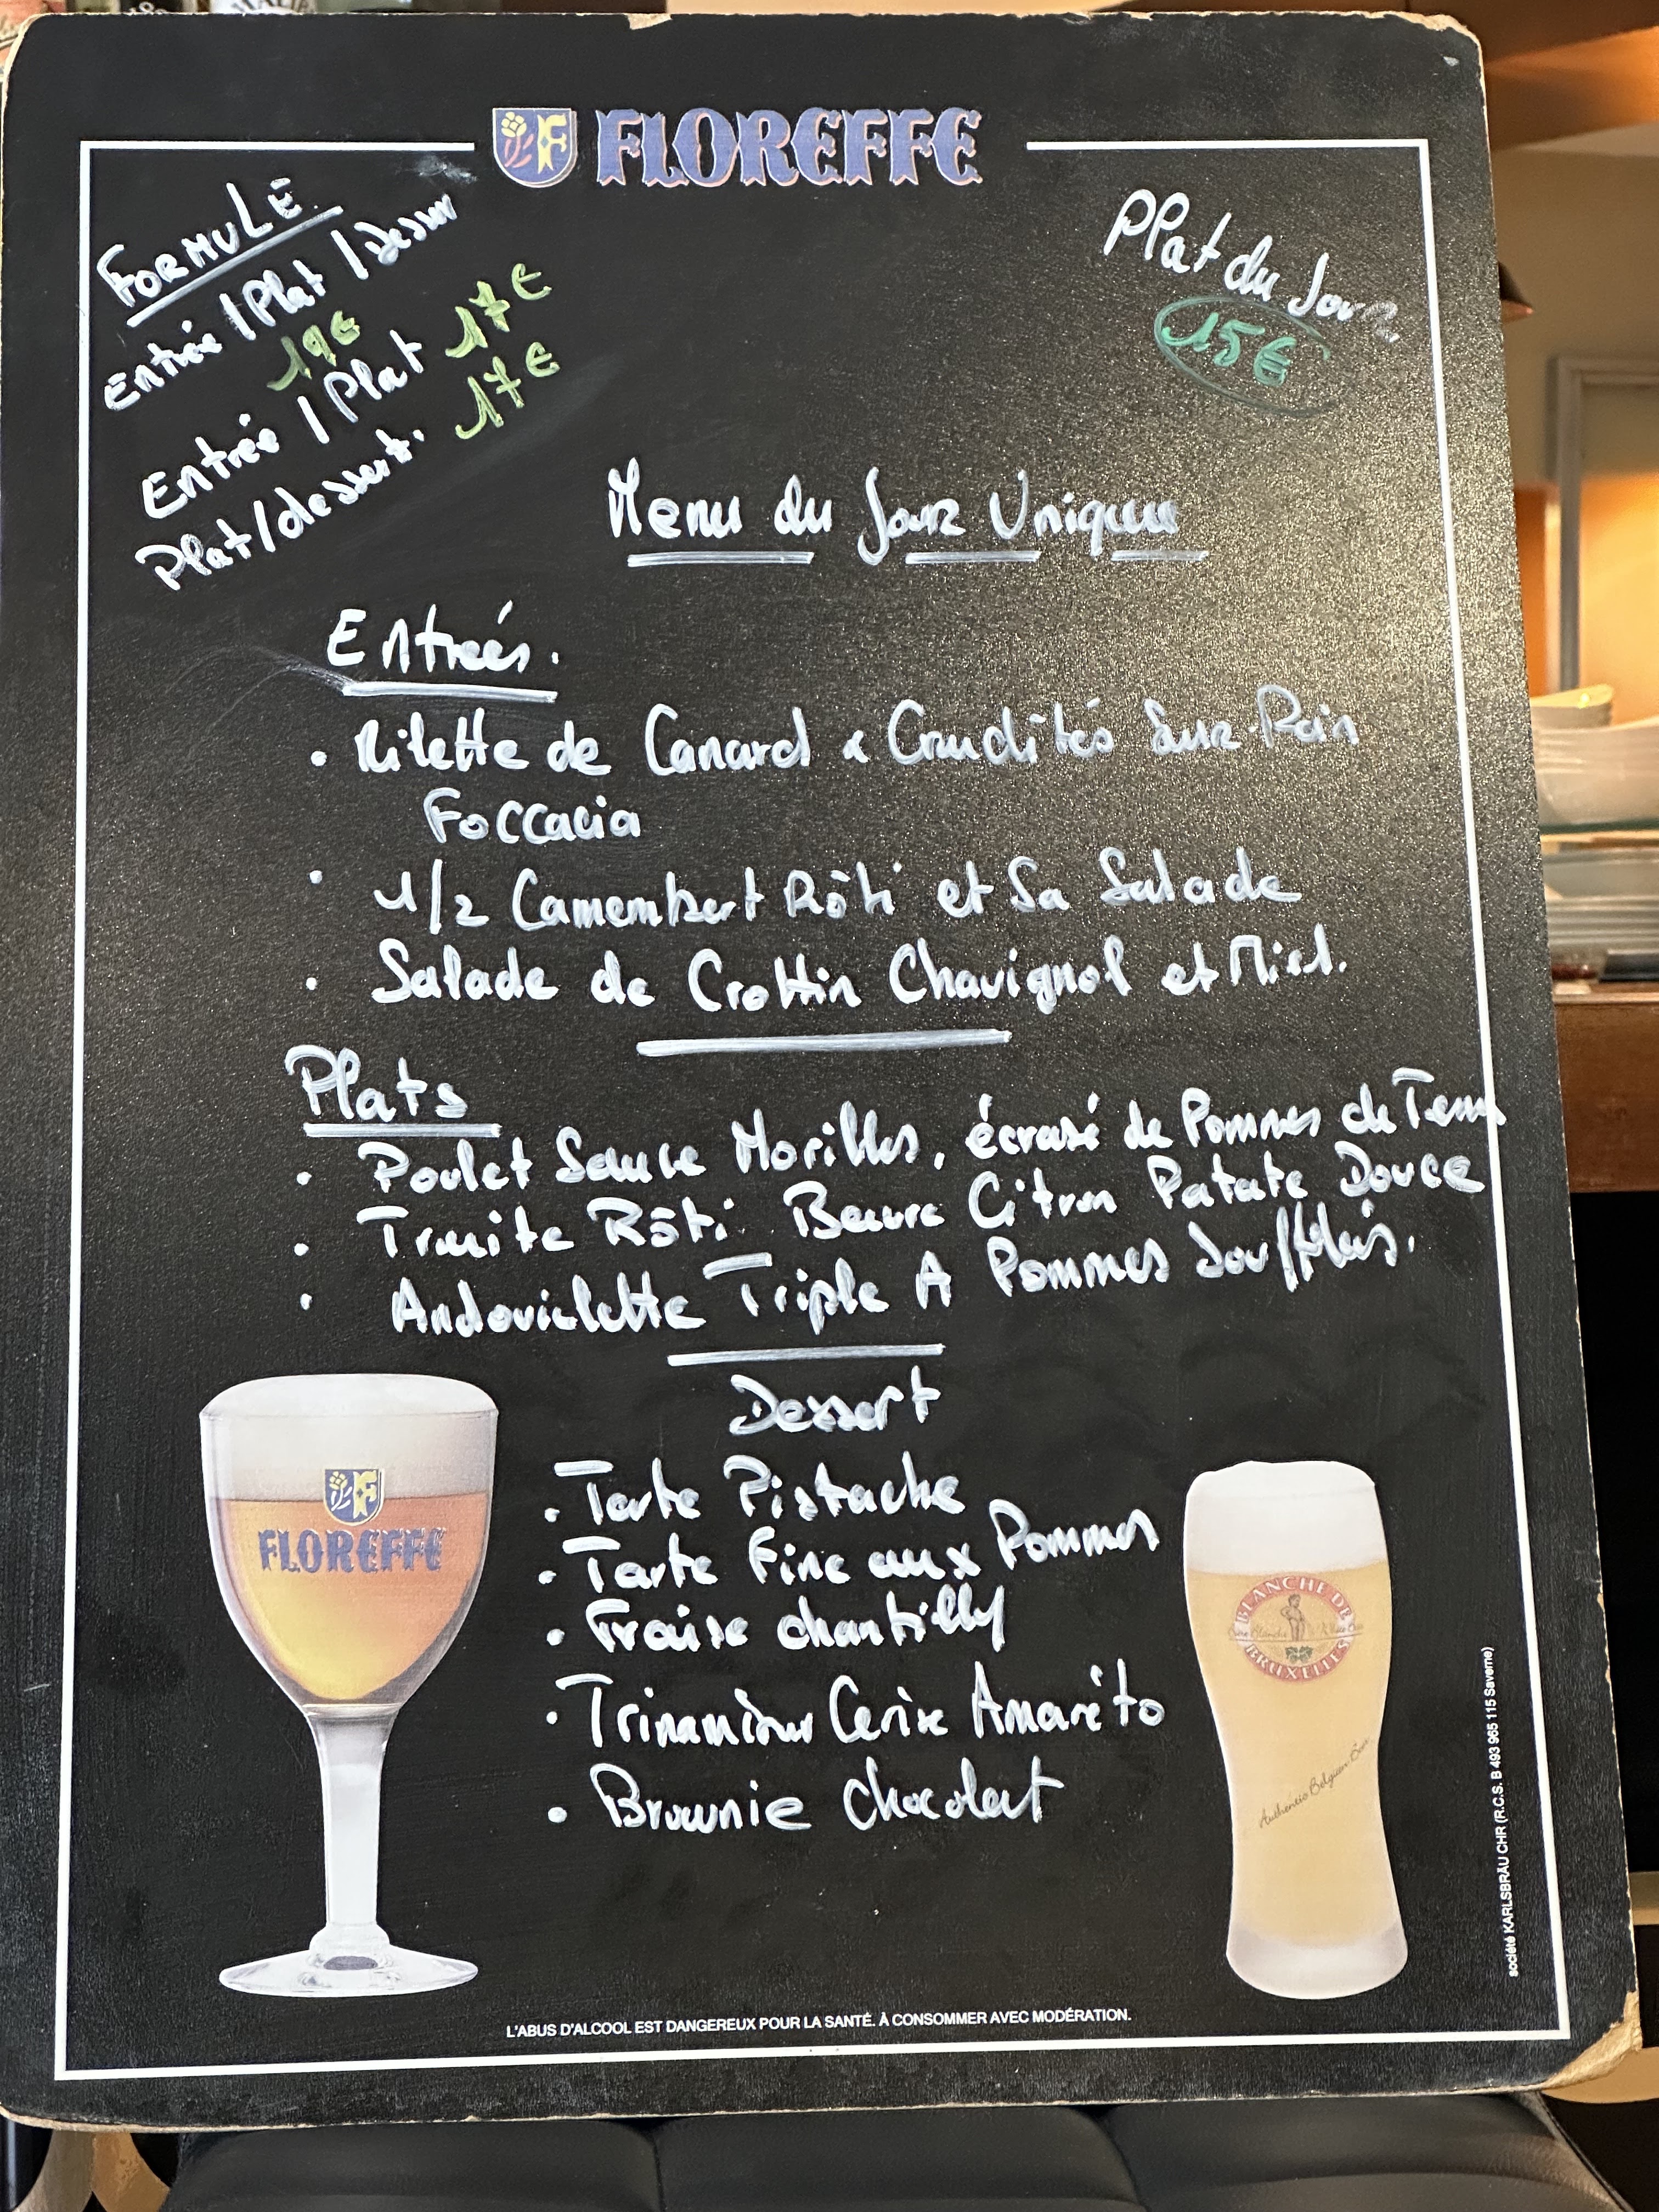 FLOREFFE
FORMULE
Entrée / Plat / Dessert
19€
Entrée / Plat 17€
Plat / dessert. 17€
Plat du Jour
15€
Menu du Jour Unique
Entrées.
• Rilette de Canard & Crudités Sur Pain
Foccacia
• 1/2 Camembert Rôti et Sa Salade
• Salade de Crottin Chavignol et Miel.
Plats
• Poulet Sauce Morilles, écrasé de Pommes de Terre
• Truite Rôti Beurre Citron Patate Douce
• Andouiellette Triple A Pommes Soufflés.
Dessert
• Tarte Pistache
• Tarte Fine aux Pommes
• Fraise chantilly
• Cerise Amaréto
• Brownie Chocolat
FLOREFFE
BLANCHE DE
BRUXELLES
Authentic Belgium Beer
société KARLSBRÄU CHR (R.C.S. B 493 965 115 Saverne)
L'ABUS D'ALCOOL EST DANGEREUX POUR LA SANTÉ. À CONSOMMER AVEC MODÉRATION.